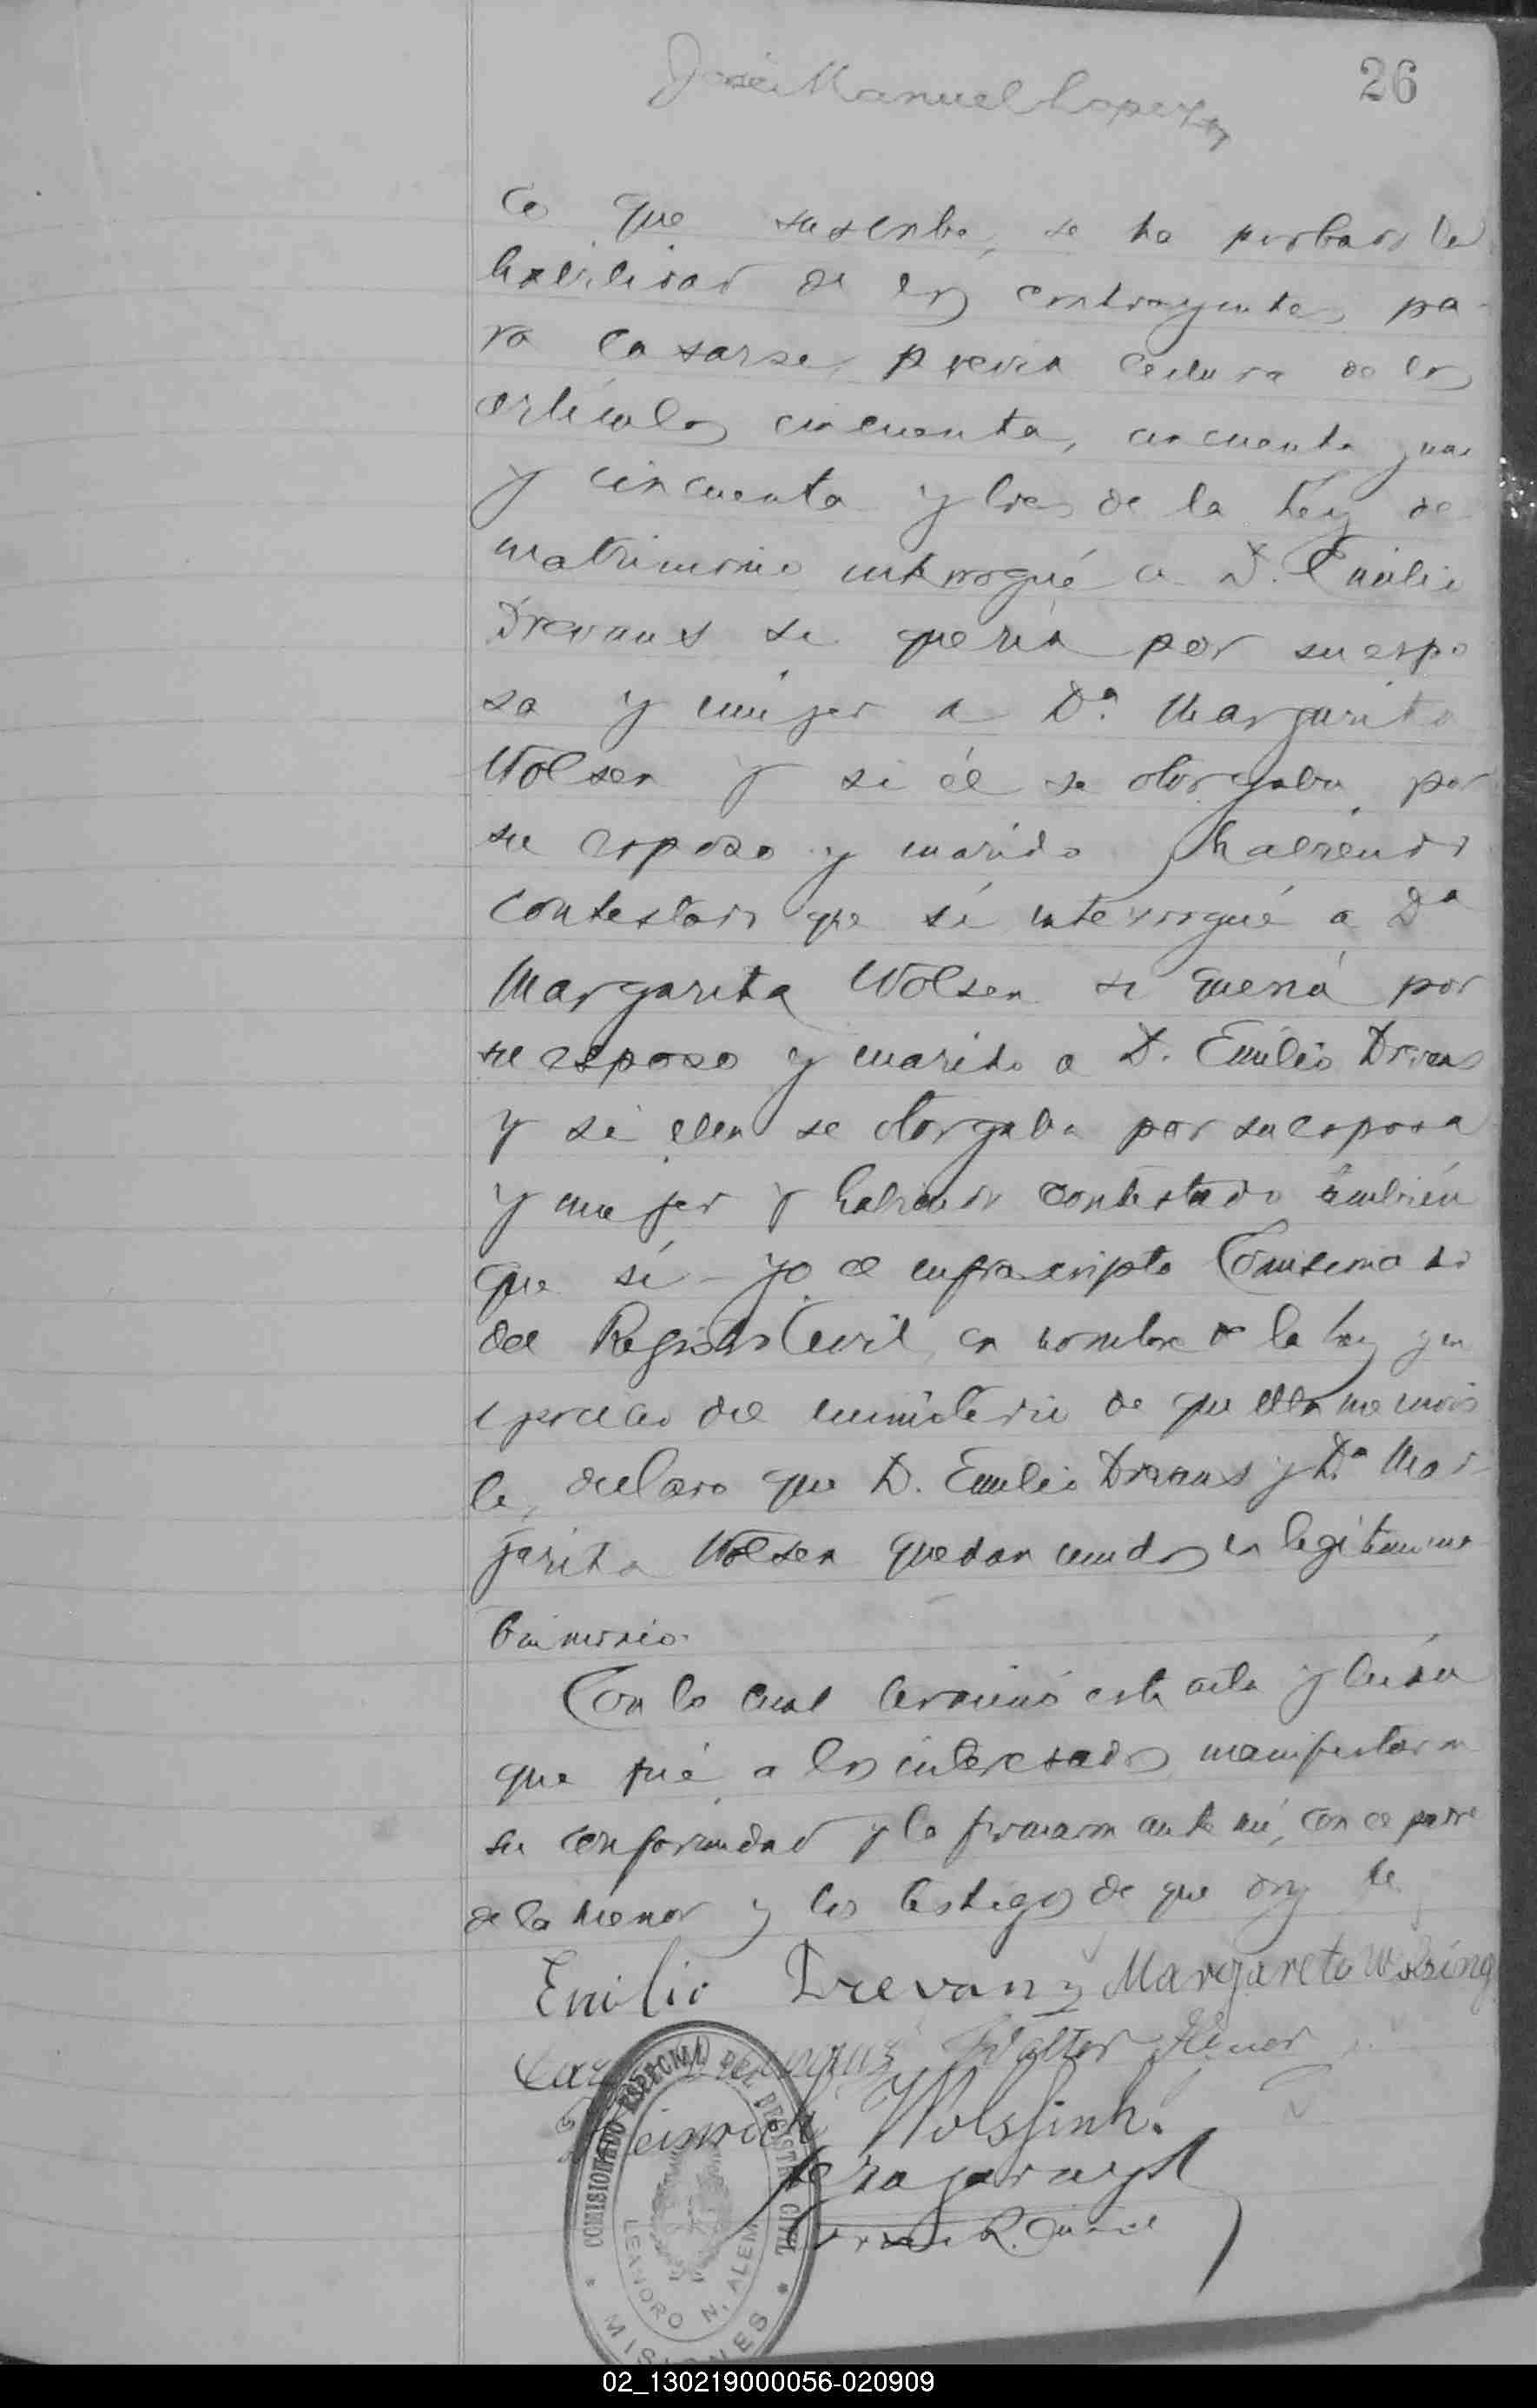 José Manuel Lopez
26
lo que suscribe, se ha probado la
habilidad de los contrayentes pa-
ra casarse, previa lectura de los
artículos cincuenta, cincuenta y uno
y cincuenta y tres de la Ley de
matrimonio interrogué a D. Emilio
Drevanz si quería por su espo
sa y mujer a Dª. Margarita
Wolsen y si él se otorgaba por
su esposo y marido y habiendo
contestado que sí interrogué a Dª
Margarita Wolsen si quería por
su esposo y marido a D. Emilio Drevans
y si ella se otorgaba por su esposa
y mujer y habiendo contestado también
que sí - yo el infrascripto Comisionado
del Registro Civil, en nombre de la ley y en
ejercicio del ministerio de que ella me inviste
declaro que D. Emilio Drevans y Dª Mar-
garita Wolsen quedan unidos en legítimo ma
trimonio.
Con lo cual terminó esta acta y leída
que fué a los interesados manifestaron
su conformidad y la firmaron ante mí, con el padre
de la menor y los testigos de que doy fe
Emilio Drevanz Margareta Wolsing
Walter
Heinrich Wolssink.
COMISIONADO ESPECIAL DEL REGISTRO CIVIL
LEANDRO N. ALEM
* MISIONES *
02_130219000056-020909